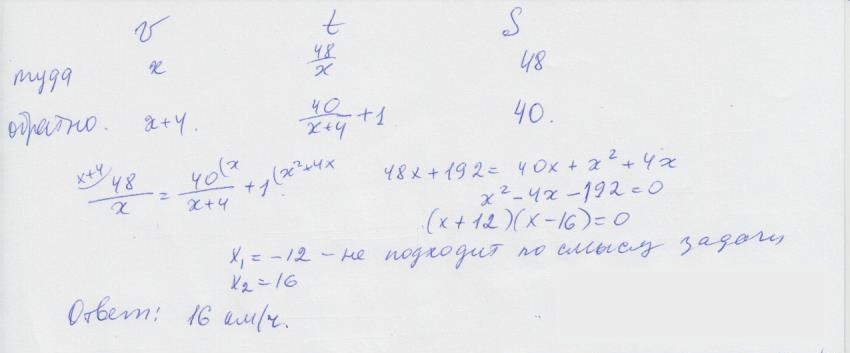 v t S
туда x 48/x 48
обратно. x+4. 40/(x+4) + 1 40.
x+4) 48/x = 40(x/(x+4) + 1(x²+4x 48x+192= 40x+x²+4x
x²-4x-192=0
(x+12)(x-16)=0
x₁ = -12 - не подходит по смыслу задачи
x₂ = 16
Ответ: 16 км/ч.